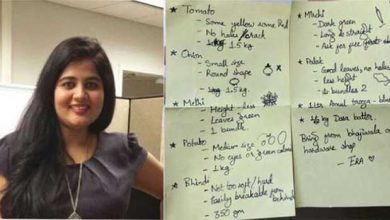 * Tomato
- Some yellow some Red
- No holes/crack
- 1.5 kg
* Onion
- Small size
- Round shape
- 1.5 kg
* Methi
- Height-less
- Leaves green
- 1 bundle
* Potato
- Medium size
- No eyes or green colour
- 1 kg
* Bhindi
- Not too soft/hard
- Easily breakable from behind
- 350 gm
* Mirchi
- Dark green
- Long & straight
- Ask for free
* Palak
- Good leaves, no holes
- Less height
- bundles 2
1 ltr Amul
butter
Bring from bhajiwala
hardware shop
- ERA